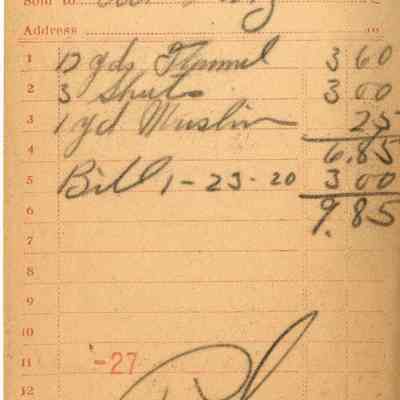 Sold to
Address
1 12 yds Flannel 3 60
2 3 Shirts 3 00
3 1 yd Muslin 25
4 6.85
5 Bill 1-23-20 3 00
6 9.85
7
8
9
10
11 -27
12